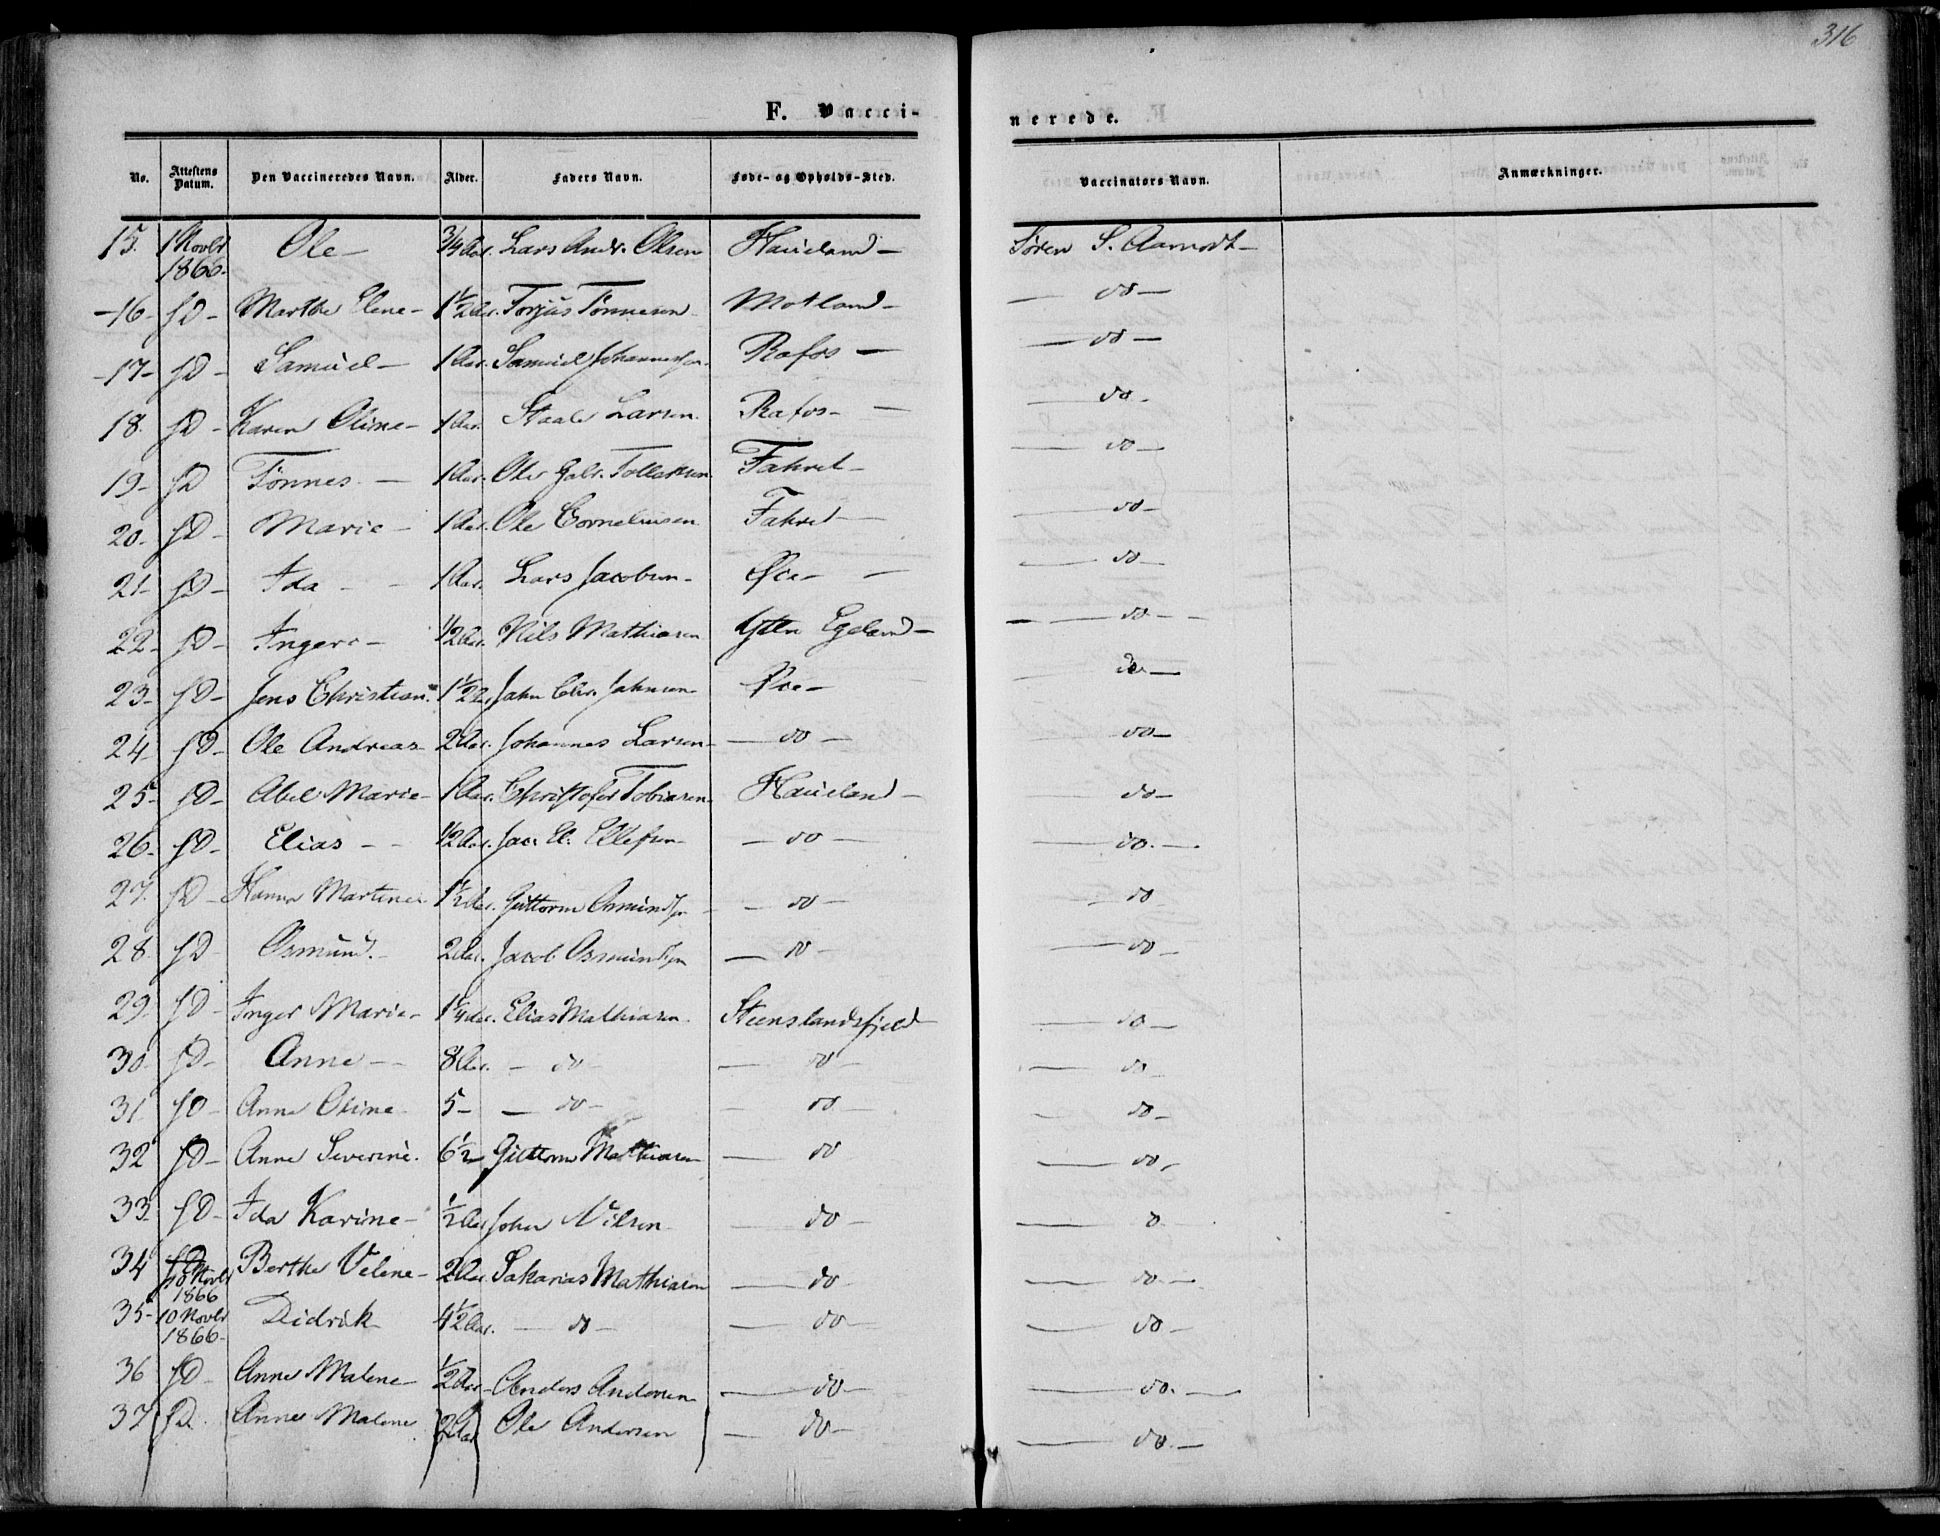 316
F. Vacci-
nerede.
No. Attestens Datum. Den Vaccineredes Navn. Alder. Faders Navn. Føde- og Opholds-Sted. Vaccinators Navn. Anmærkninger.
15. 1 Novbr 1866. Ole – 3/4 Aar. Lars Andr. Olsen Haueland – Søren S. Aamodt –
–16– sD – Marthe Elene – 1 1/2 Aar. Torjus Tønnesen Motland – – do –
–17– sD – Samuel – 1 Aar. Samuel Johannessen Rafos – – do –
18. sD – Karen Oline – 1 Aar. Staale Larsen. Rafos – – do –
19– sD Tønnes. – 1 Aar. Ole Gabr. Tollaksen Fahret – – do –
20. sD – Marie – 1 Aar. Ole Corneliusen Fahret – – do –
21– sD – Ida – 1 Aar. Lars Jacobsen – Øie – – do –
22– sD – Ingere – 1/2 Aar. Nils Mathiasen Ytter Egeland – – do –
23– sD – Jens Christian. 1 1/2 Aar Jahn Chr. Jahnsen – Øie – – do –
24– sD – Ole Andreas – 2 Aar. Johannes Larsen – – do – – do –
25– sD – Abel Marie – 1 Aar. Christofer Tobiasen – Haueland – – do –
26– sD – Elias – – 1/2 Aar. Jac. El. Ellefsen – – do – – do. –
27. sD – Hanna Martine – 1 1/2 Aar. Guttorm Osmundsen – – do – – do
28. sD Osmund. – 2 Aar. Jacob Osmundsen – do – – do –
29. sD – Inger Marie – 1 1/4 Aar. Elias Mathiasen. Steenslandsfjeld – do –
30. sD – Anne – – 8 Aar. – do – – do – – do –
31 sD – Anne Oline – 5 – – do – – do – – do –
32 sD – Anne Severine. 6 1/2 – Guttorm Mathiasen – do – do –
33– sD – Ida Karine – 1/2 Aar John Nilsen – do – – do
34 10 Novbr 1866 Berthe Velene – 2 Aar Sakarias Mathiasen – do – – do –
35– 10 Novbr 1866– Didrik 4 1/2 Aar. – do – – do – – do –
36 sD – Anne Malene – 1/2 Aar – Anders Andersen – do – – do. –
37 sD. Anne Malene 2 Aar Ole Andersen – do – – do. –